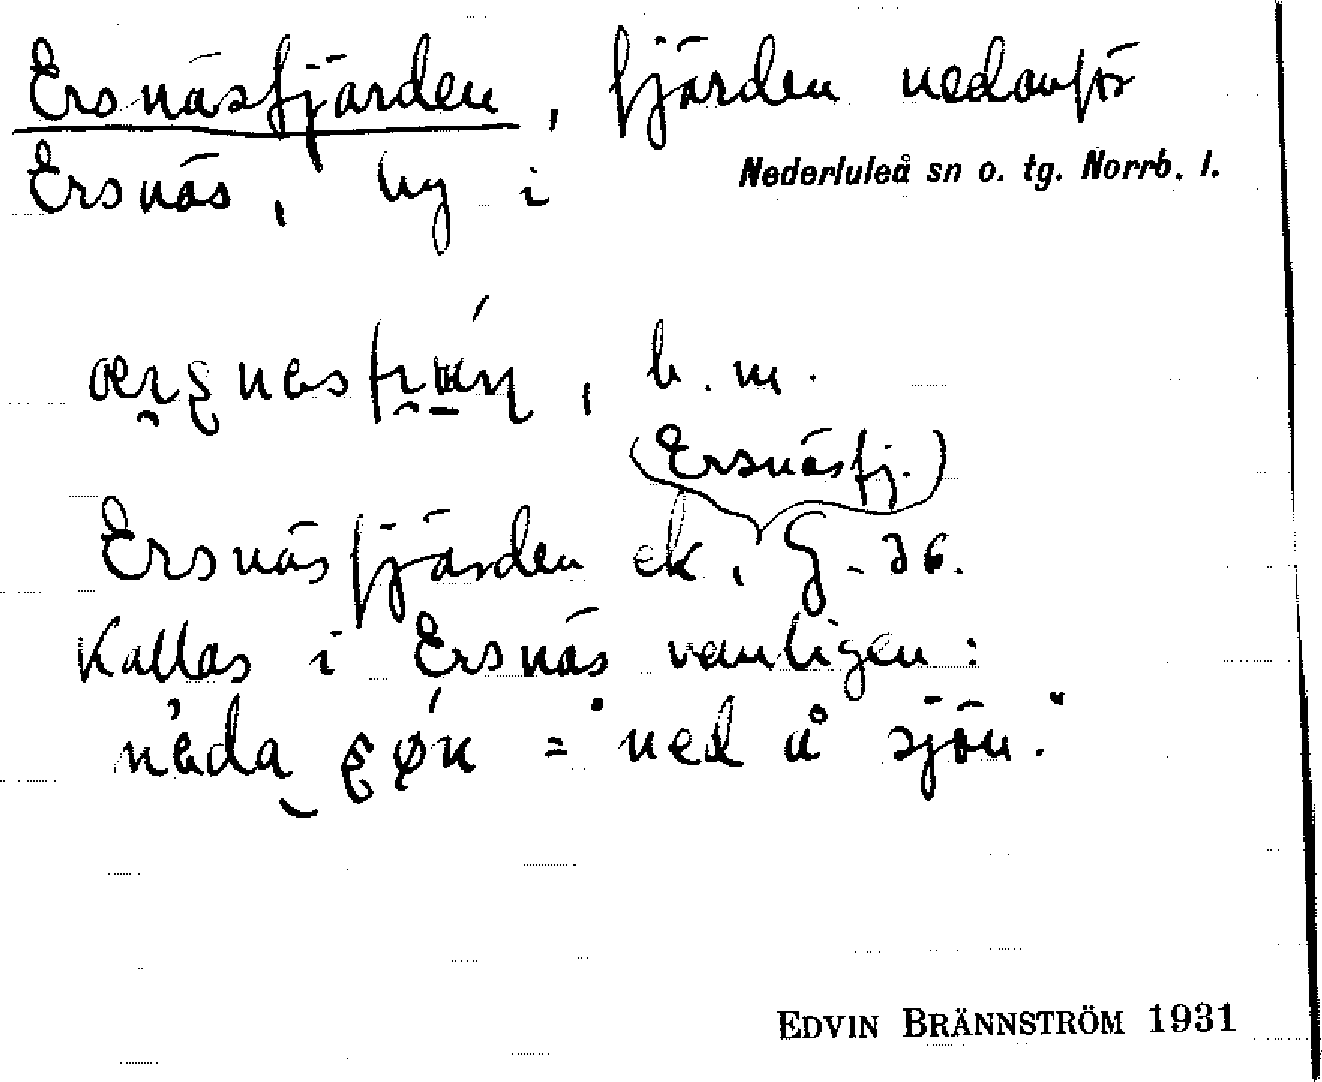 Ersnäsfjärden, fjärden nedanför
Ersnäs, by i Nederluleå sn o. tg. Norrb. l.
b. m.
(Ersnäsfj.)
Ersnäsfjärden ek, G. 36.
Kallas i Ersnäs vanligen:
= "ned å sjön."
EDVIN BRÄNNSTRÖM 1931